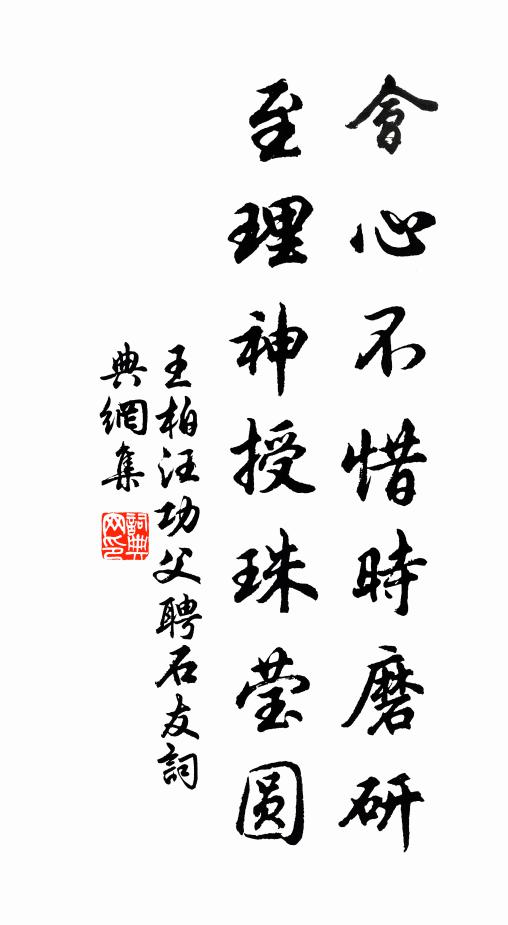 會心不惜時磨研
至理神授珠莹圆
王柏汪功父聘石友詞
典網集
詞典網印